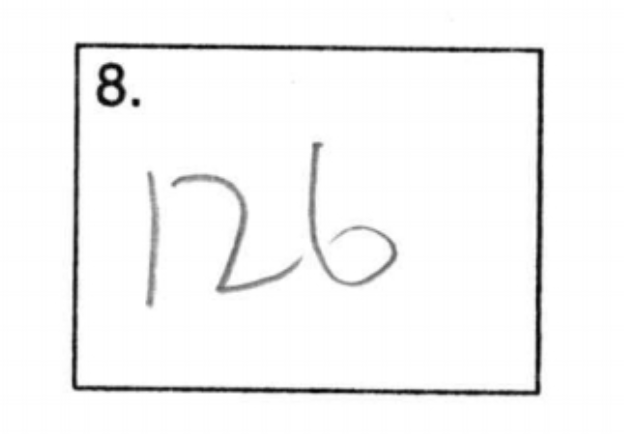 8.
126